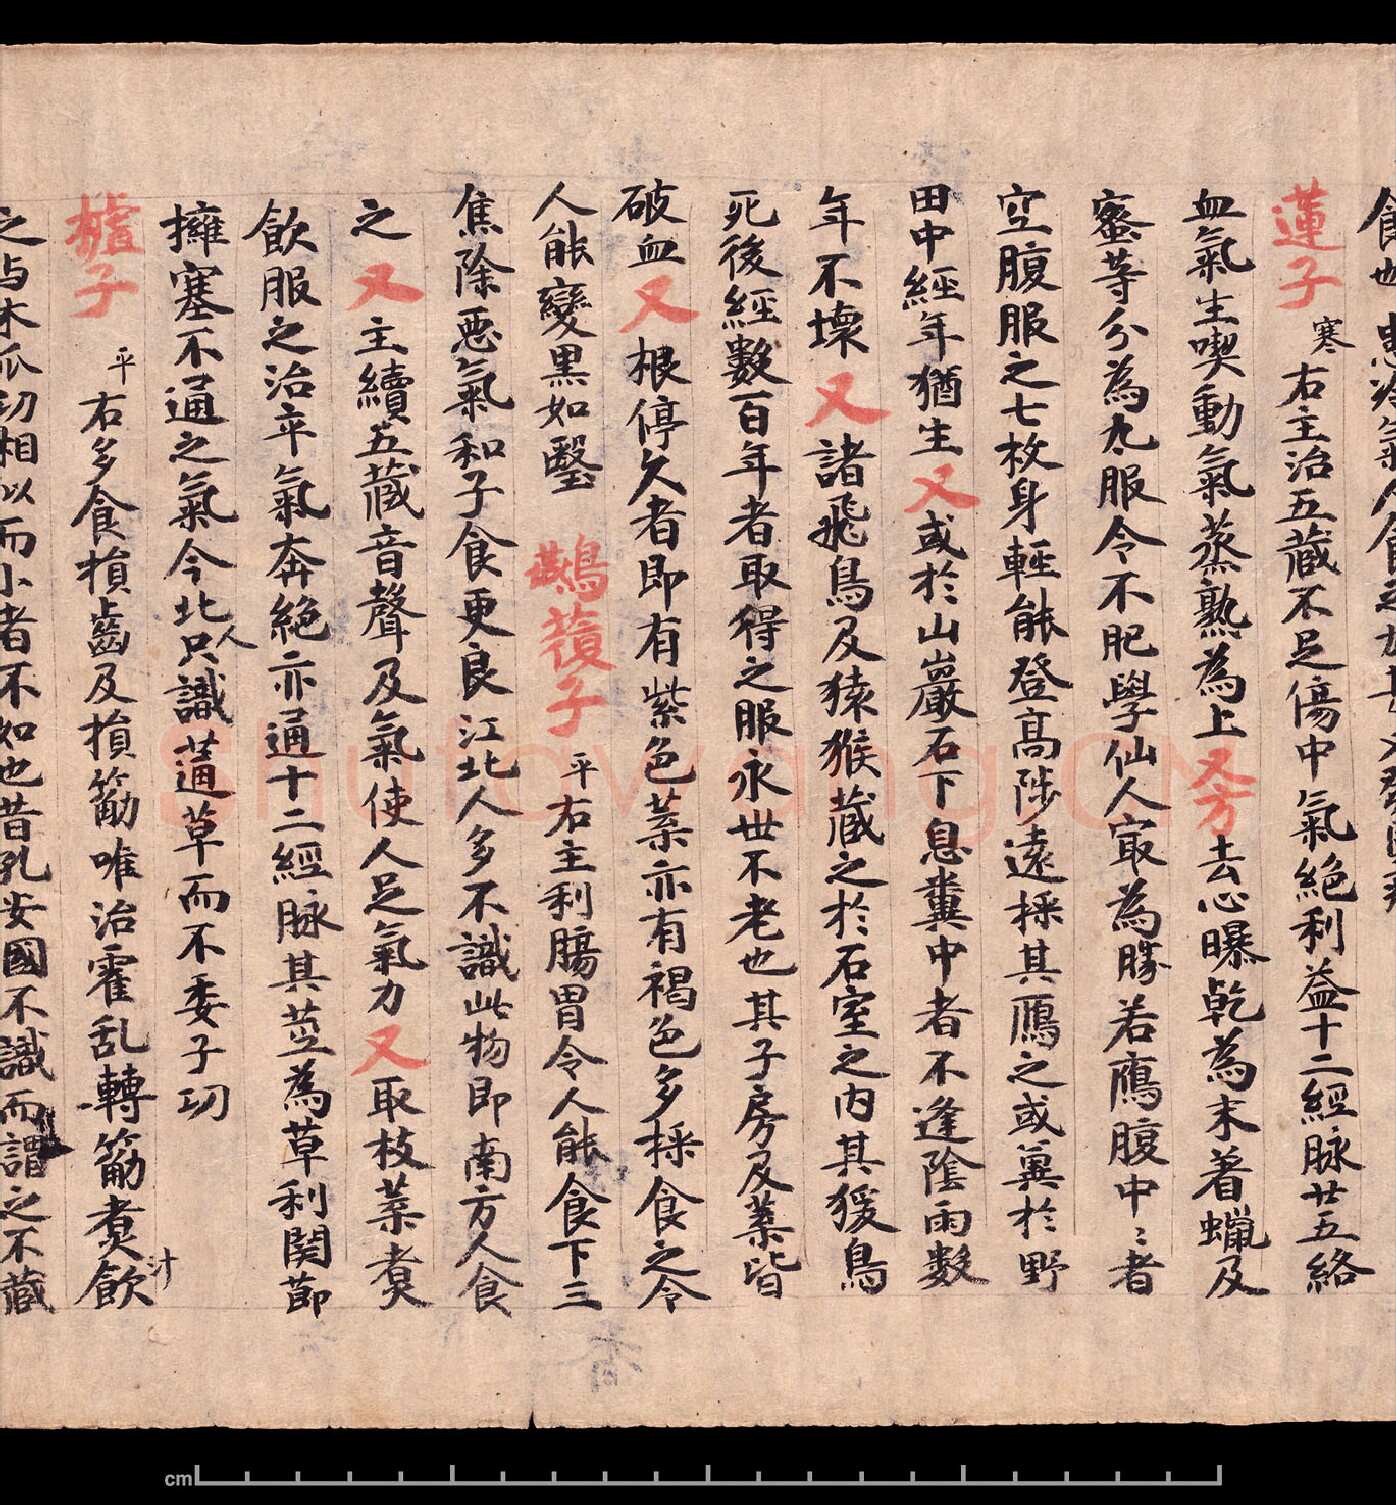 食也 患冷氣人食
蓮子 寒 右主治五藏不足傷中氣絕利益十二經脉廿五絡
血氣生喫動氣蒸熟為上又方去心曝乾為末著蠟及
蜜等分為丸服令不肥學仙人㝡為勝若鴈腹中〻者
空腹服之七枚身輕能登高陟遠採其鴈之或糞於野
田中經年猶生又或於山巖石下息糞中者不逢陰雨數
年不壞又諸飛鳥及猿猴藏之於石室之內其猨鳥
死後經數百年者取得之服永世不老也其子房及葉皆
破血又根停久者即有紫色葉亦有褐色多採食之令
人能變黑如瑿 鷰蕧子 平 右主利腸胃令人能食下三
焦除惡氣和子食更良江北人多不識此物即南方人食
之又主續五藏音聲及氣使人足氣力又取枝葉煮
飲服之治卒氣奔絕亦通十二經脉其莖為草利関節
擁塞不通之氣今北人只識蓪草而不委子功
樝子 平 右多食損齒及損筯唯治霍乱轉筯煮汁飲
之与木瓜功相似而小者不如也昔孔安國不識而謂之不藏
cm
Shuge.org.CN